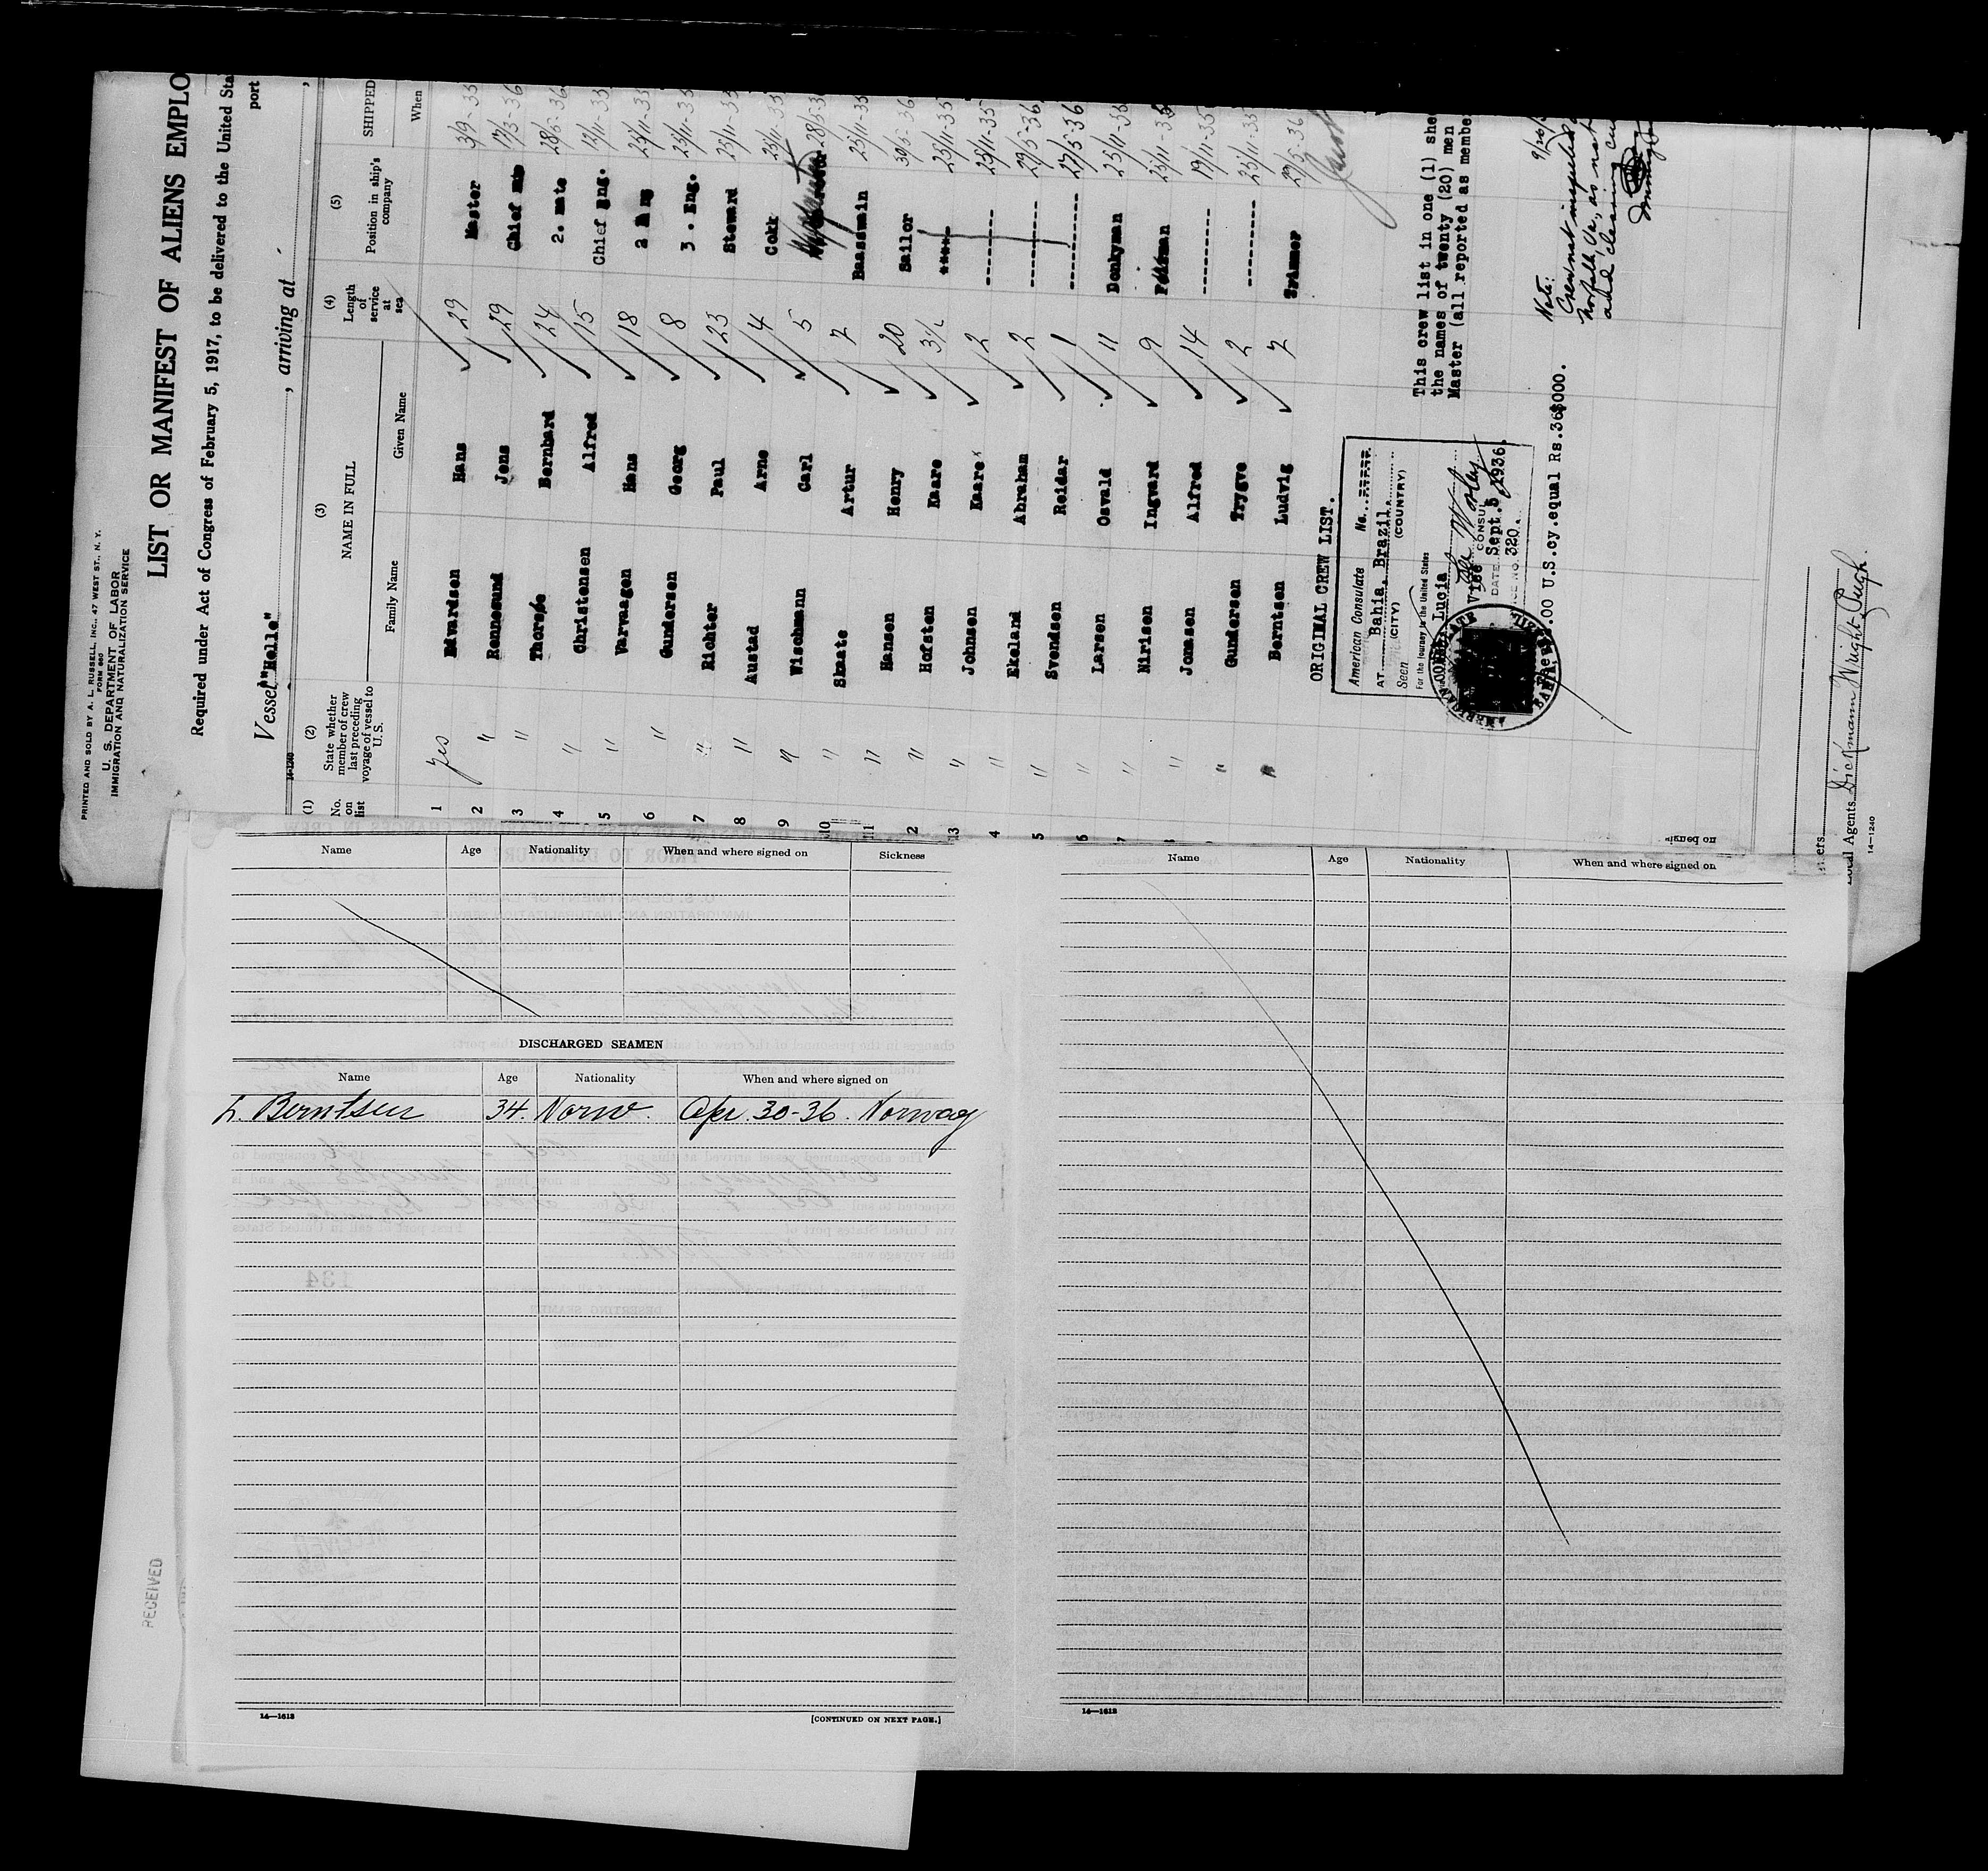 PRINTED AND SOLD BY A. L. RUSSELL, INC., 47 WEST ST., N. Y.
FORM 660
U. S. DEPARTMENT OF LABOR
IMMIGRATION AND NATURALIZATION SERVICE
LIST OR MANIFEST OF ALIENS EMPLO
Required under Act of Congress of February 5, 1917, to be delivered to the United Sta
port
Vessel "Helle" , arriving at ,
14-1240
(1) (2) (3) (4) (5)
No. on list
State whether member of crew last preceding voyage of vessel to U. S.
NAME IN FULL
Family Name Given Name
Length of service at sea
Position in ship's company
SHIPPED
When
1 yes Edvardsen Hans 29 Master 3/9-35
2 " Rennesund Jens 29 Chief mte 17/3-36
3 " Thorsøe Bernhard 24 2. mte 28/5-36
4 " Christensen Alfred 15 Chief Eng. 12/11-35
5 " Varwaagen Hans 18 2 Eng 23/11-35
6 " Gundersen Georg 8 3. Eng. 23/11-35
7 " Richter Paul 23 Steward 23/11-35
8 " Austad Arne 4 Cokk 23/11-35
9 " Wischmann Carl 5 28/5-3
10 " Skaate Artur 7 Baassmain 23/11-35
11 " Hansen Henry 20 Sailor 30/5-36
2 " Hofsten Kaare 3½ 23/11-35
13 " Johnsen Kaare 2 -------- 23/11-35
4 " Ekeland Abraham 2 -------- 29/5-36
5 " Svendsen Reidar 1 -------- 27/5-36
6 " Larsen Osvald 11 Donkyman 23/11-35
7 " Nirisen Ingvard 9 23/11-35
8 " Jomasen Alfred 14 -------- 19/11-35
" Gundersen Trygve 2 -------- 23/11-35
" Berntsen Ludvig 7 Trimmer 29/5-36
ORIGINAL CREW LIST.
This crew list in one (1) she
the names of twenty (20) men
Master (all reported as membe
American Consulate No.
AT Bahia, Brazil
(CITY) (COUNTRY)
Seen
For the journey to the United States
Lucia
VICE CONSUL
DATE Sept. 5 1936.
NO. 320
.00 U.S.cy.equal Rs.36$000.
Note: 9/20/3
Crew not inspected
Norfolk, Va., as not
Local Agents Dickmann Wright, Pugh
14—1240
Name Age Nationality When and where signed on Sickness
DISCHARGED SEAMEN
Name Age Nationality When and where signed on
L. Berntsen 34. Norw. Apr. 30-36. Norway
14—1613
[CONTINUED ON NEXT PAGE.]
signed on
Name Age Nationality When and where signed on
14—1613
RECEIVED
134